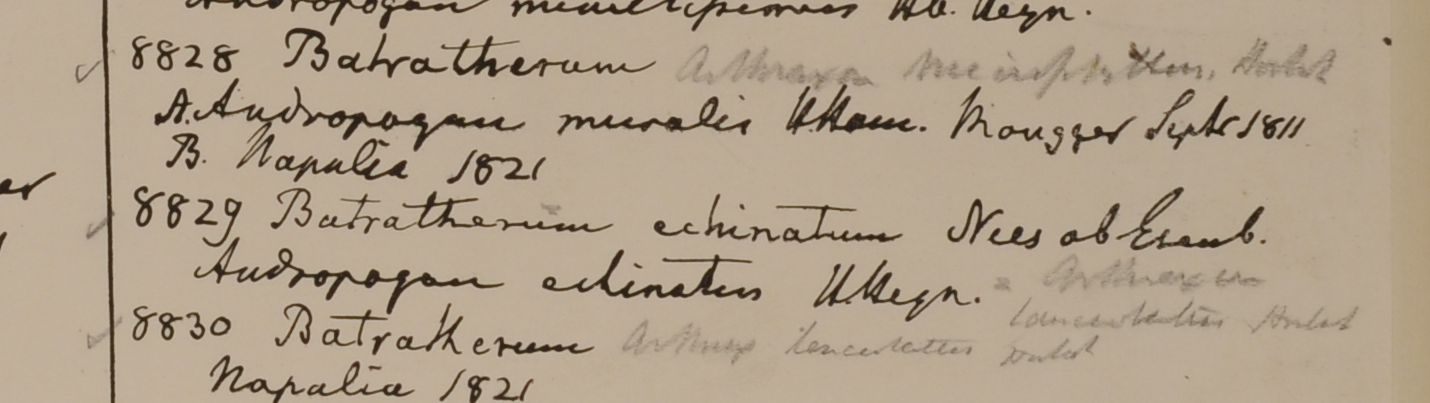 Andropogon H. Heyn.
8828 Batratherum Arthraxon microphyllus, Hochst
A. Andropogon muralis H. Ham. Mongger Septr 1811
B. Napalia 1821
8829 Batratherum echinatum Nees ab Esenb.
Andropogon echinatus H. Heyn. = Arthraxon
lanceolatus Hochst
8830 Batratherum Arthrax lanceolatus Hochst
Napalia 1821